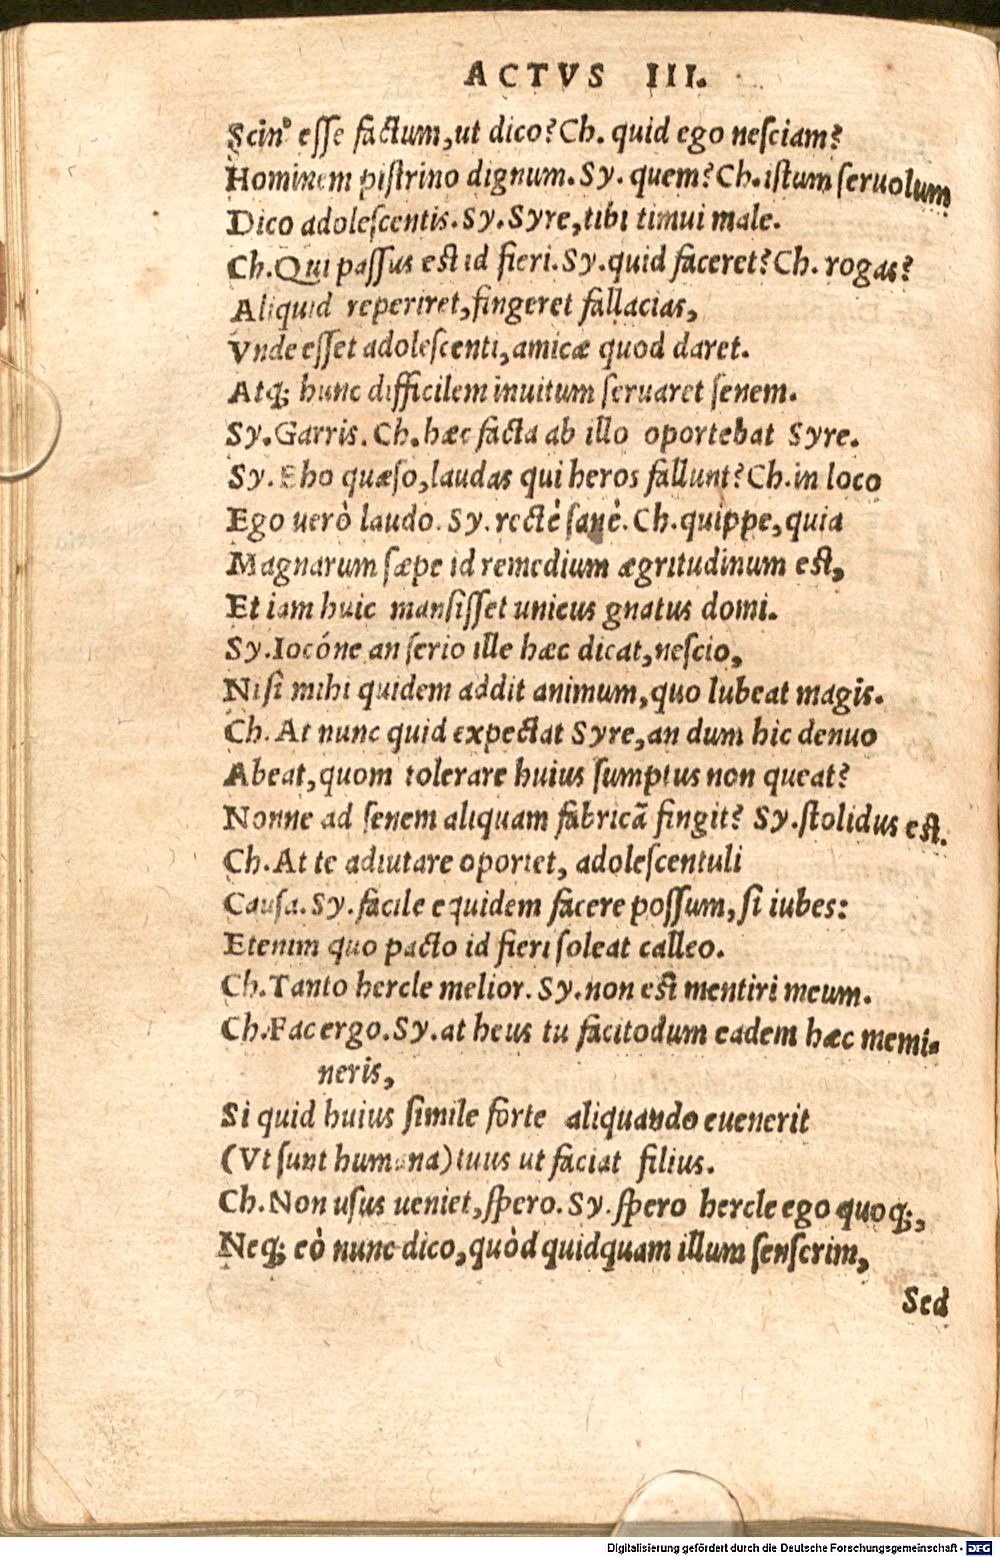 ACTVS III.
Scin' esse factum, ut dico? Ch. quid ego nesciam?
Hominem pistrino dignum. Sy. quem? Ch. istum seruolum
Dico adolescentis. Sy. Syre, tibi timui male.
Ch. Qui passus est id fieri. Sy. quid faceret? Ch. rogas?
Aliquid reperiret, fingeret fallacias,
Vnde esset adolescenti, amicæ quod daret.
Atq; hunc difficilem inuitum seruaret senem.
Sy. Garris. Ch. hæc facta ab illo oportebat Syre.
Sy. Eho quæso, laudas qui heros fallunt? Ch. in loco
Ego uerò laudo. Sy. rectè sanè. Ch. quippe, quia
Magnarum sæpe id remedium ægritudinum est,
Et iam huic mansisset unicus gnatus domi.
Sy. Iocóne an serio ille hæc dicat, nescio,
Nisi mihi quidem addit animum, quo lubeat magis.
Ch. At nunc quid expectat Syre, an dum hic denuo
Abeat, quom tolerare huius sumptus non queat?
Nonne ad senem aliquam fabricã fingit? Sy. stolidus est.
Ch. At te adiutare oportet, adolescentuli
Causa. Sy. facile equidem facere possum, si iubes:
Etenim quo pacto id fieri soleat calleo.
Ch. Tanto hercle melior. Sy. non est mentiri meum.
Ch. Fac ergo. Sy. at heus tu facitodum eadem hæc memi-
neris,
Si quid huius simile forte aliquando euenerit
(Vt sunt humana) tuus ut faciat filius.
Ch. Non usus ueniet, spero. Sy. spero hercle ego quoq;,
Neq; eò nunc dico, quòd quidquam illum senserim,
Sed
Digitalisierung gefördert durch die Deutsche Forschungsgemeinschaft - DFG